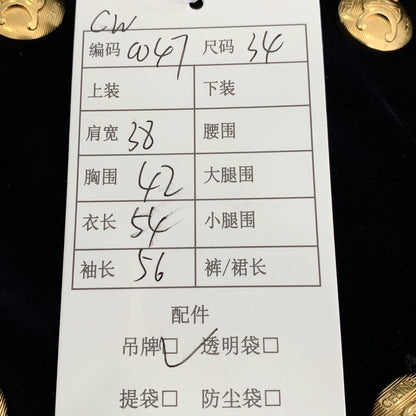 CW
编码 0047 尺码 34
上装 下装
肩宽 38 腰围
胸围 42 大腿围
衣长 54 小腿围
袖长 56 裤/裙长
配件
吊牌☑ 透明袋□
提袋□ 防尘袋□